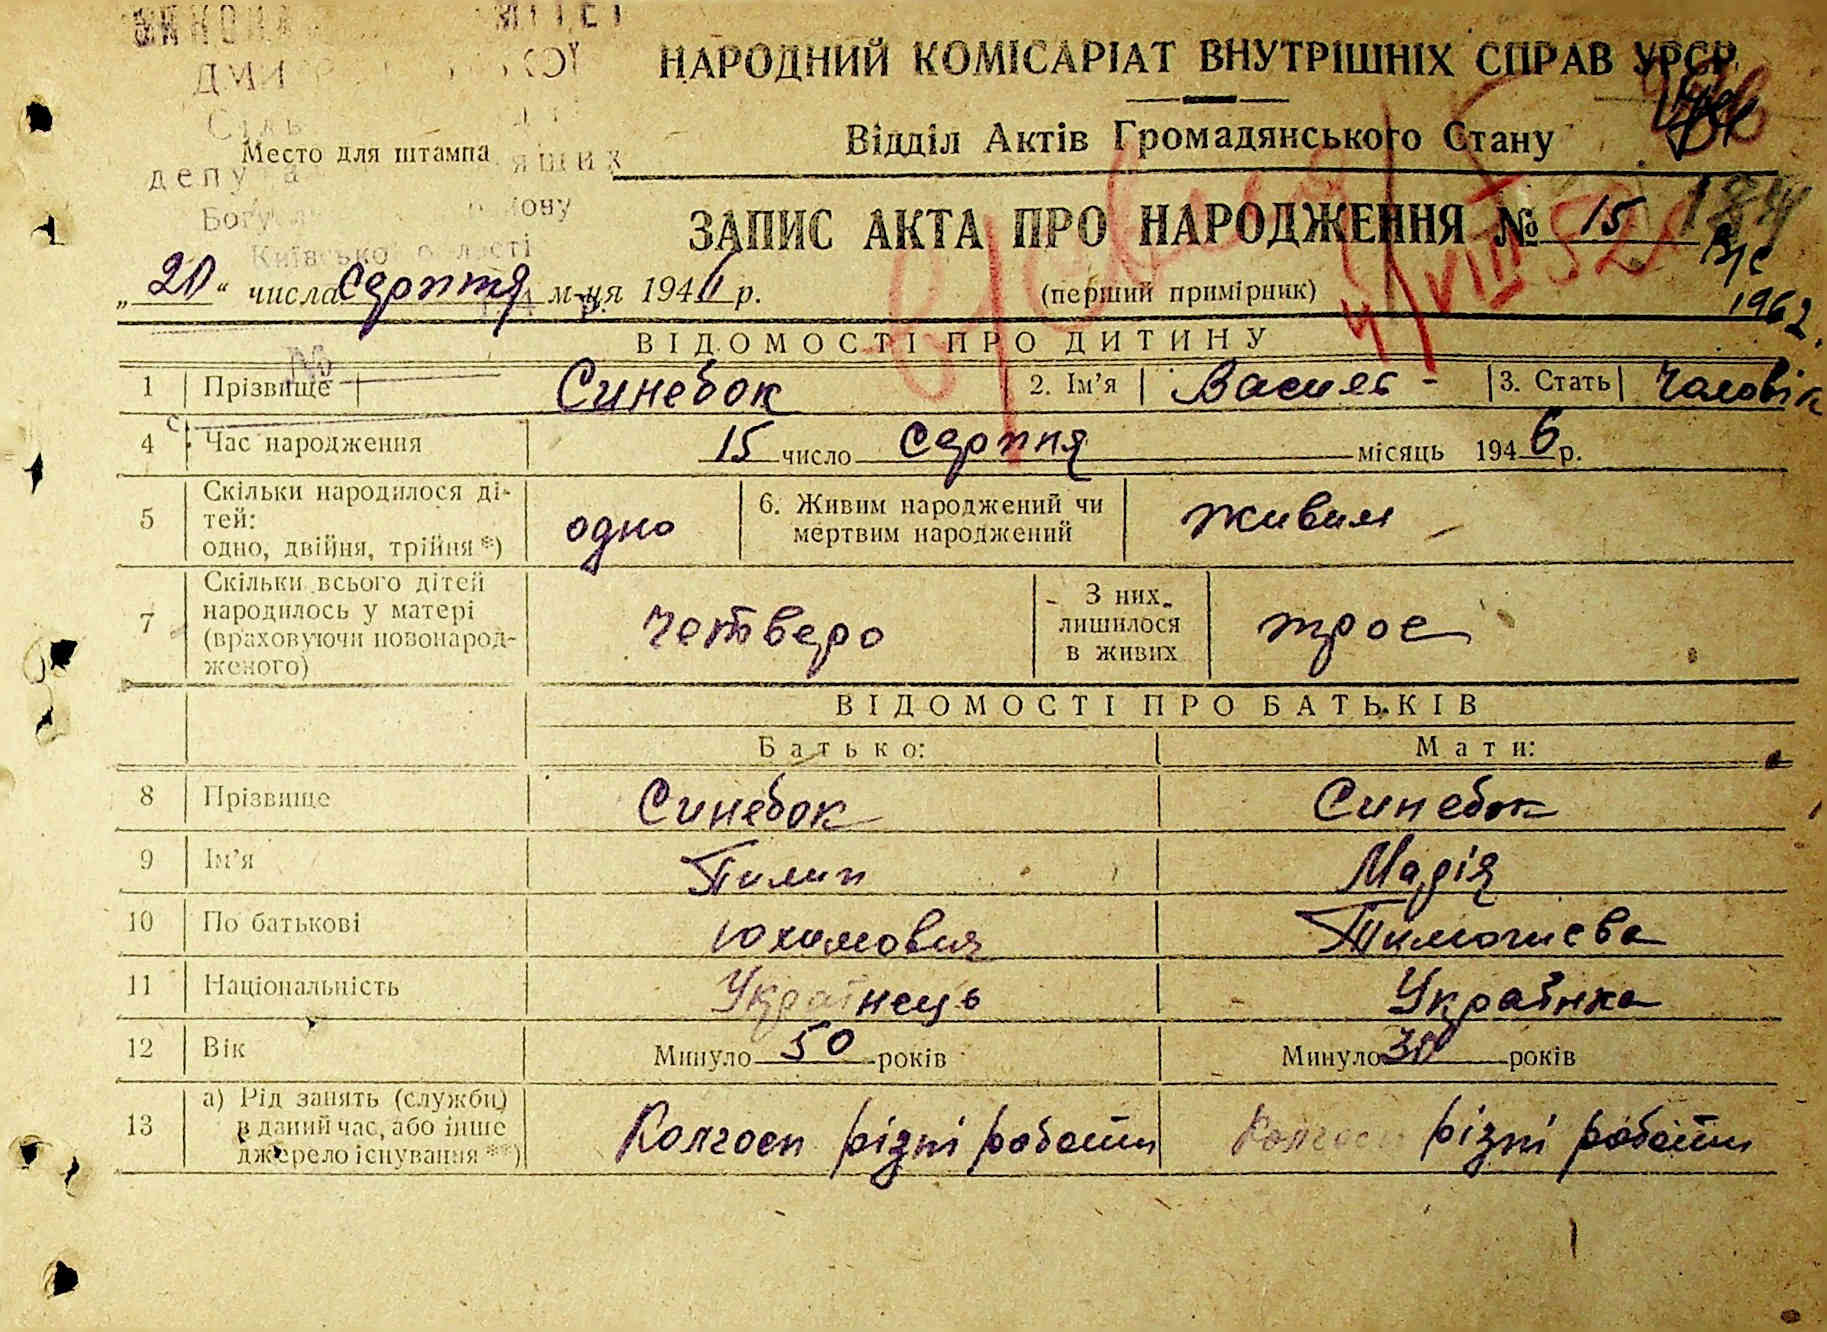 НАРОДНИЙ КОМІСАРІАТ ВНУТРІШНІХ СПРАВ УРСР
Відділ Актів Громадянського Стану
Место для штампа
депу
Київської області
ЗАПИС АКТА ПРО НАРОДЖЕННЯ № 15
184
В/с
1962.
„20“ числа серпня м-ця 1946 р.
(перший примірник)
4/VIII 52
ВІДОМОСТІ ПРО ДИТИНУ
№
1 Прізвище Синебок 2. Ім’я Василь - 3. Стать Чоловік
4 Час народження 15 число Серпня місяць 1946 р.
5 Скільки народилося ді-
тей:
одно, двійня, трійня *) одно 6. Живим народжений чи
мертвим народжений живим
7 Скільки всього дітей
народилось у матері
(враховуючи новонарод-
женого) четверо З них
лишилося
в живих троє
ВІДОМОСТІ ПРО БАТЬКІВ
Батько: Мати:
8 Прізвище Синебок Синебок
9 Ім’я Пилип Марія
10 По батькові Юхимович Тимофиєва
11 Національність Українець Українка
12 Вік Минуло 50 років Минуло років
13 а) Рід занять (служби)
в даний час, або інше
джерело існування **) Колгосп різні роботи Колгосп різні роботи